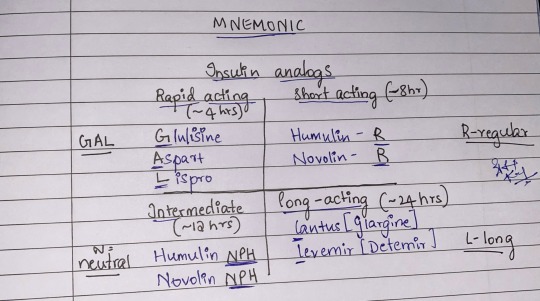 MNEMONIC
Insulin analogs
Rapid acting (~4 hrs)
Short acting (~8hr)
GAL
Glulisine
Aspart
Lispro
Humulin - R
Novolin - R
R-regular
Intermediate (~12 hrs)
long-acting (~24 hrs)
N= neutral
Humulin NPH
Novolin NPH
Lantus [glargine]
Levemir [Detemir]
L-long